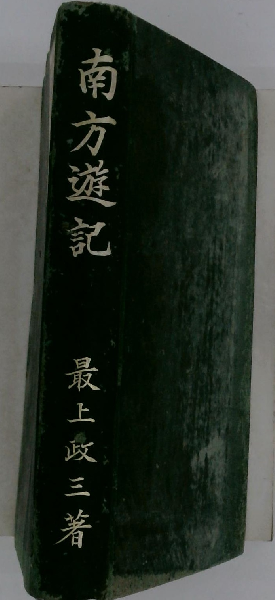 南方遊記
最上政三著